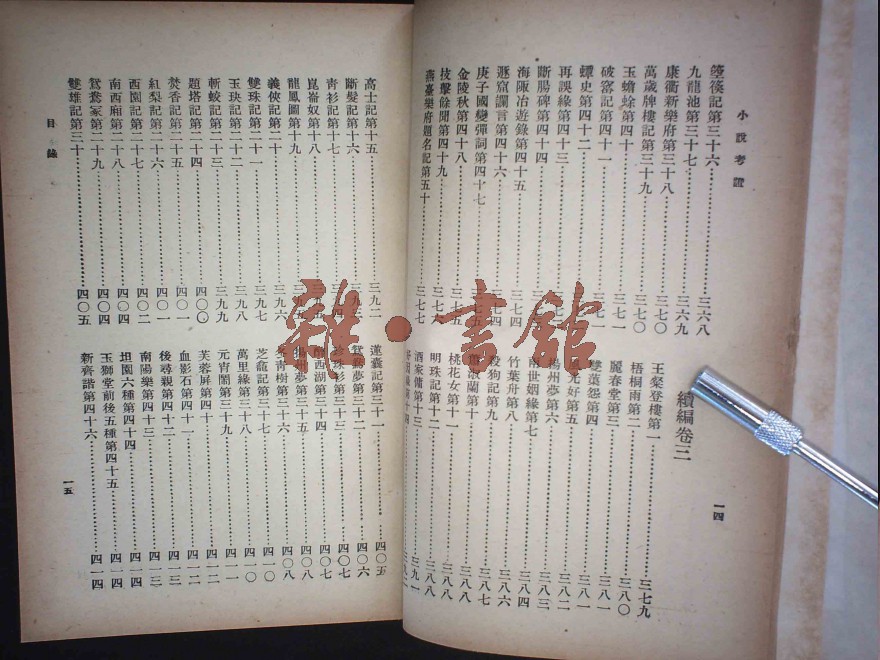 小說考證
一四
箜篌記第三十六 三六八
九龍池第三十七 三六九
康衢新樂府第三十八
萬歲牌樓記第三十九 三七〇
玉蟾蜍第四十 三七〇
破窰記第四十一 三七一
蟫史第四十二
再誤緣第四十三
斷腸碑第四十四
海陬冶遊錄第四十五 三七四
遯窟讕言第四十六
庚子國變彈詞第四十七
金陵秋第四十八 三七六
技擊餘聞第四十九 三七七
燕臺樂府題名記第五十 三七七
續編卷三
王粲登樓第一 三七九
梧桐雨第二 三八〇
麗春堂第三 三八一
雙葉怨第四 三八一
光好第五 三八二
揚州夢第六 三八二
兩世姻緣第七 三八三
竹葉舟第八 三八四
殺狗記第九 三八六
蘭第十 三八七
桃花女第十一 三八八
明珠記第十二 三八八
酒家傭第十三 三九一
第十四
目錄
一五
高士記第十五 三九二
斷髮記第十六
靑衫記第十七
崑崙奴第十八
龍鳳圖第十九
義俠記第二十 三九六
雙珠記第二十一 三九七
玉玦記第二十二 三九八
斬蛟記第二十三 三九九
題塔記第二十四 四〇〇
焚香記第二十五 四〇一
紅梨記第二十六 四〇一
西園記第二十七 四〇二
南西廂第二十八 四〇四
鴛鴦冢第二十九 四〇四
雙雄記第三十 四〇五
蓮囊記第三十一 四〇五
鴛鴦夢第三十二 四〇六
珍珠衫第三十三 四〇七
西湖第三十四 四〇七
揚州夢第三十五 四〇八
冬青樹第三十六 四〇八
芝龕記第三十七 四一〇
萬里緣第三十八 四一〇
元宵鬧第三十九 四一一
芙蓉屏第四十 四一二
血影石第四十一 四一二
後尋親第四十二 四一三
南陽樂第四十三 四一三
坦園六種第四十四 四一四
玉獅堂前後五種第四十五 四一四
新齊諧第四十六 四一四
雜·書館